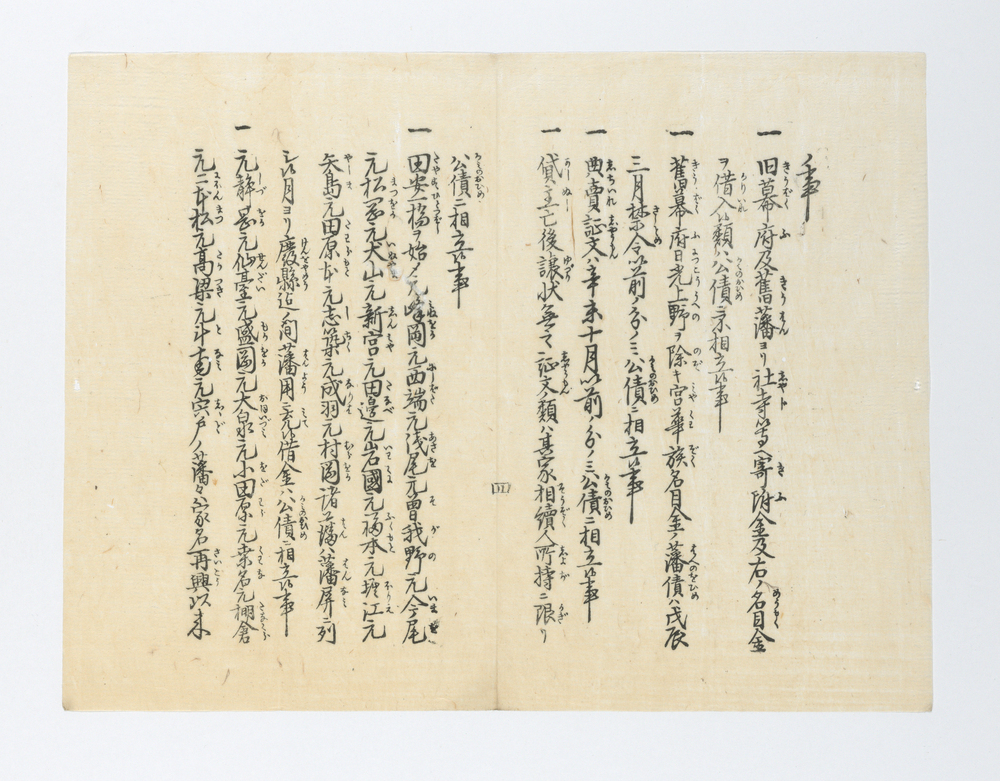 事
一 旧幕府及舊藩ヨリ社寺等ヘ寄附金及右ノ名目金
ヲ借入候類ハ公債ニ不相立候事
一 舊幕府日光上野ヲ除キ宮華族名目金ノ藩債ハ戊辰
三月禁令以前ノ分ノミ公債ニ相立候事
一 典賣証文ハ辛未十月以前ノ分ノミ公債ニ相立候事
一 貸主亡後譲状無之証文ノ類ハ其家相續人所持ニ限リ
公債ニ相立候事
一 田安一橋ヲ始メ元峰岡元西端元浅尾元曽我野元今尾
元松岡元犬山元新宮元田邊元岩國元福本元堀江元
矢島元田原本元志筑元成羽元村岡諸藩ハ藩屏ニ列
シ候月ヨリ廢縣迄ノ間藩用ニ充候借金ハ公債ニ相立候事
一 元静岡元仙臺元盛岡元大泉元小田原元桑名元棚倉
元二本松元高梁元斗南元宍戸ノ藩々ハ家名再興以来